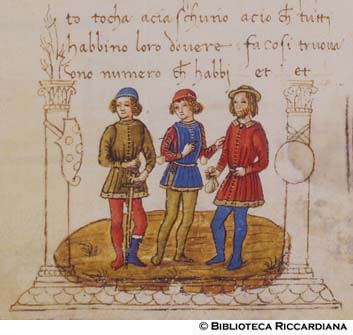 to tocha acia schuno acio ch tutti
habbino loro dovere fa cosi truova
ono numero ch habbi et et
© BIBLIOTECA RICCARDIANA